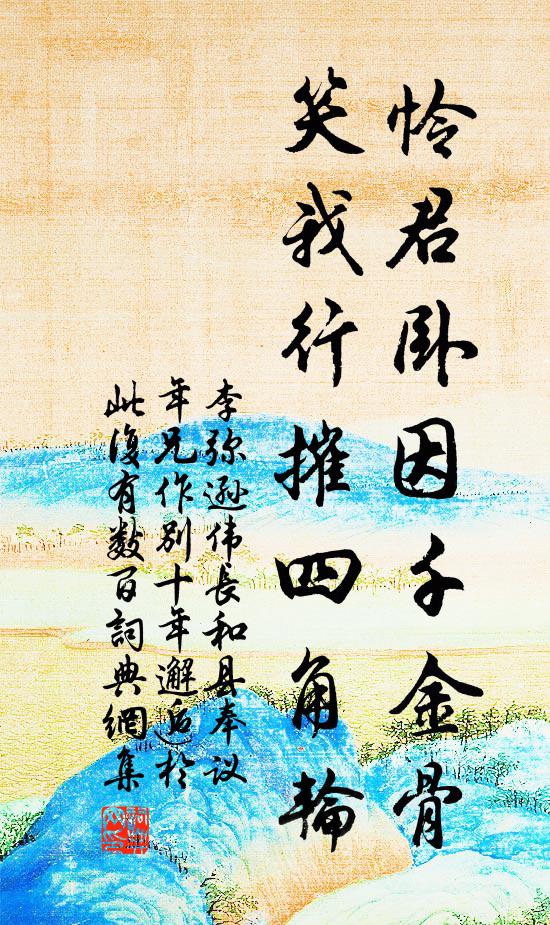 怜君卧因千金骨
笑我行摧四角輪
李弥遜伟長和县奉议
年兄作别十年邂逅於
此復有数百詞典網集